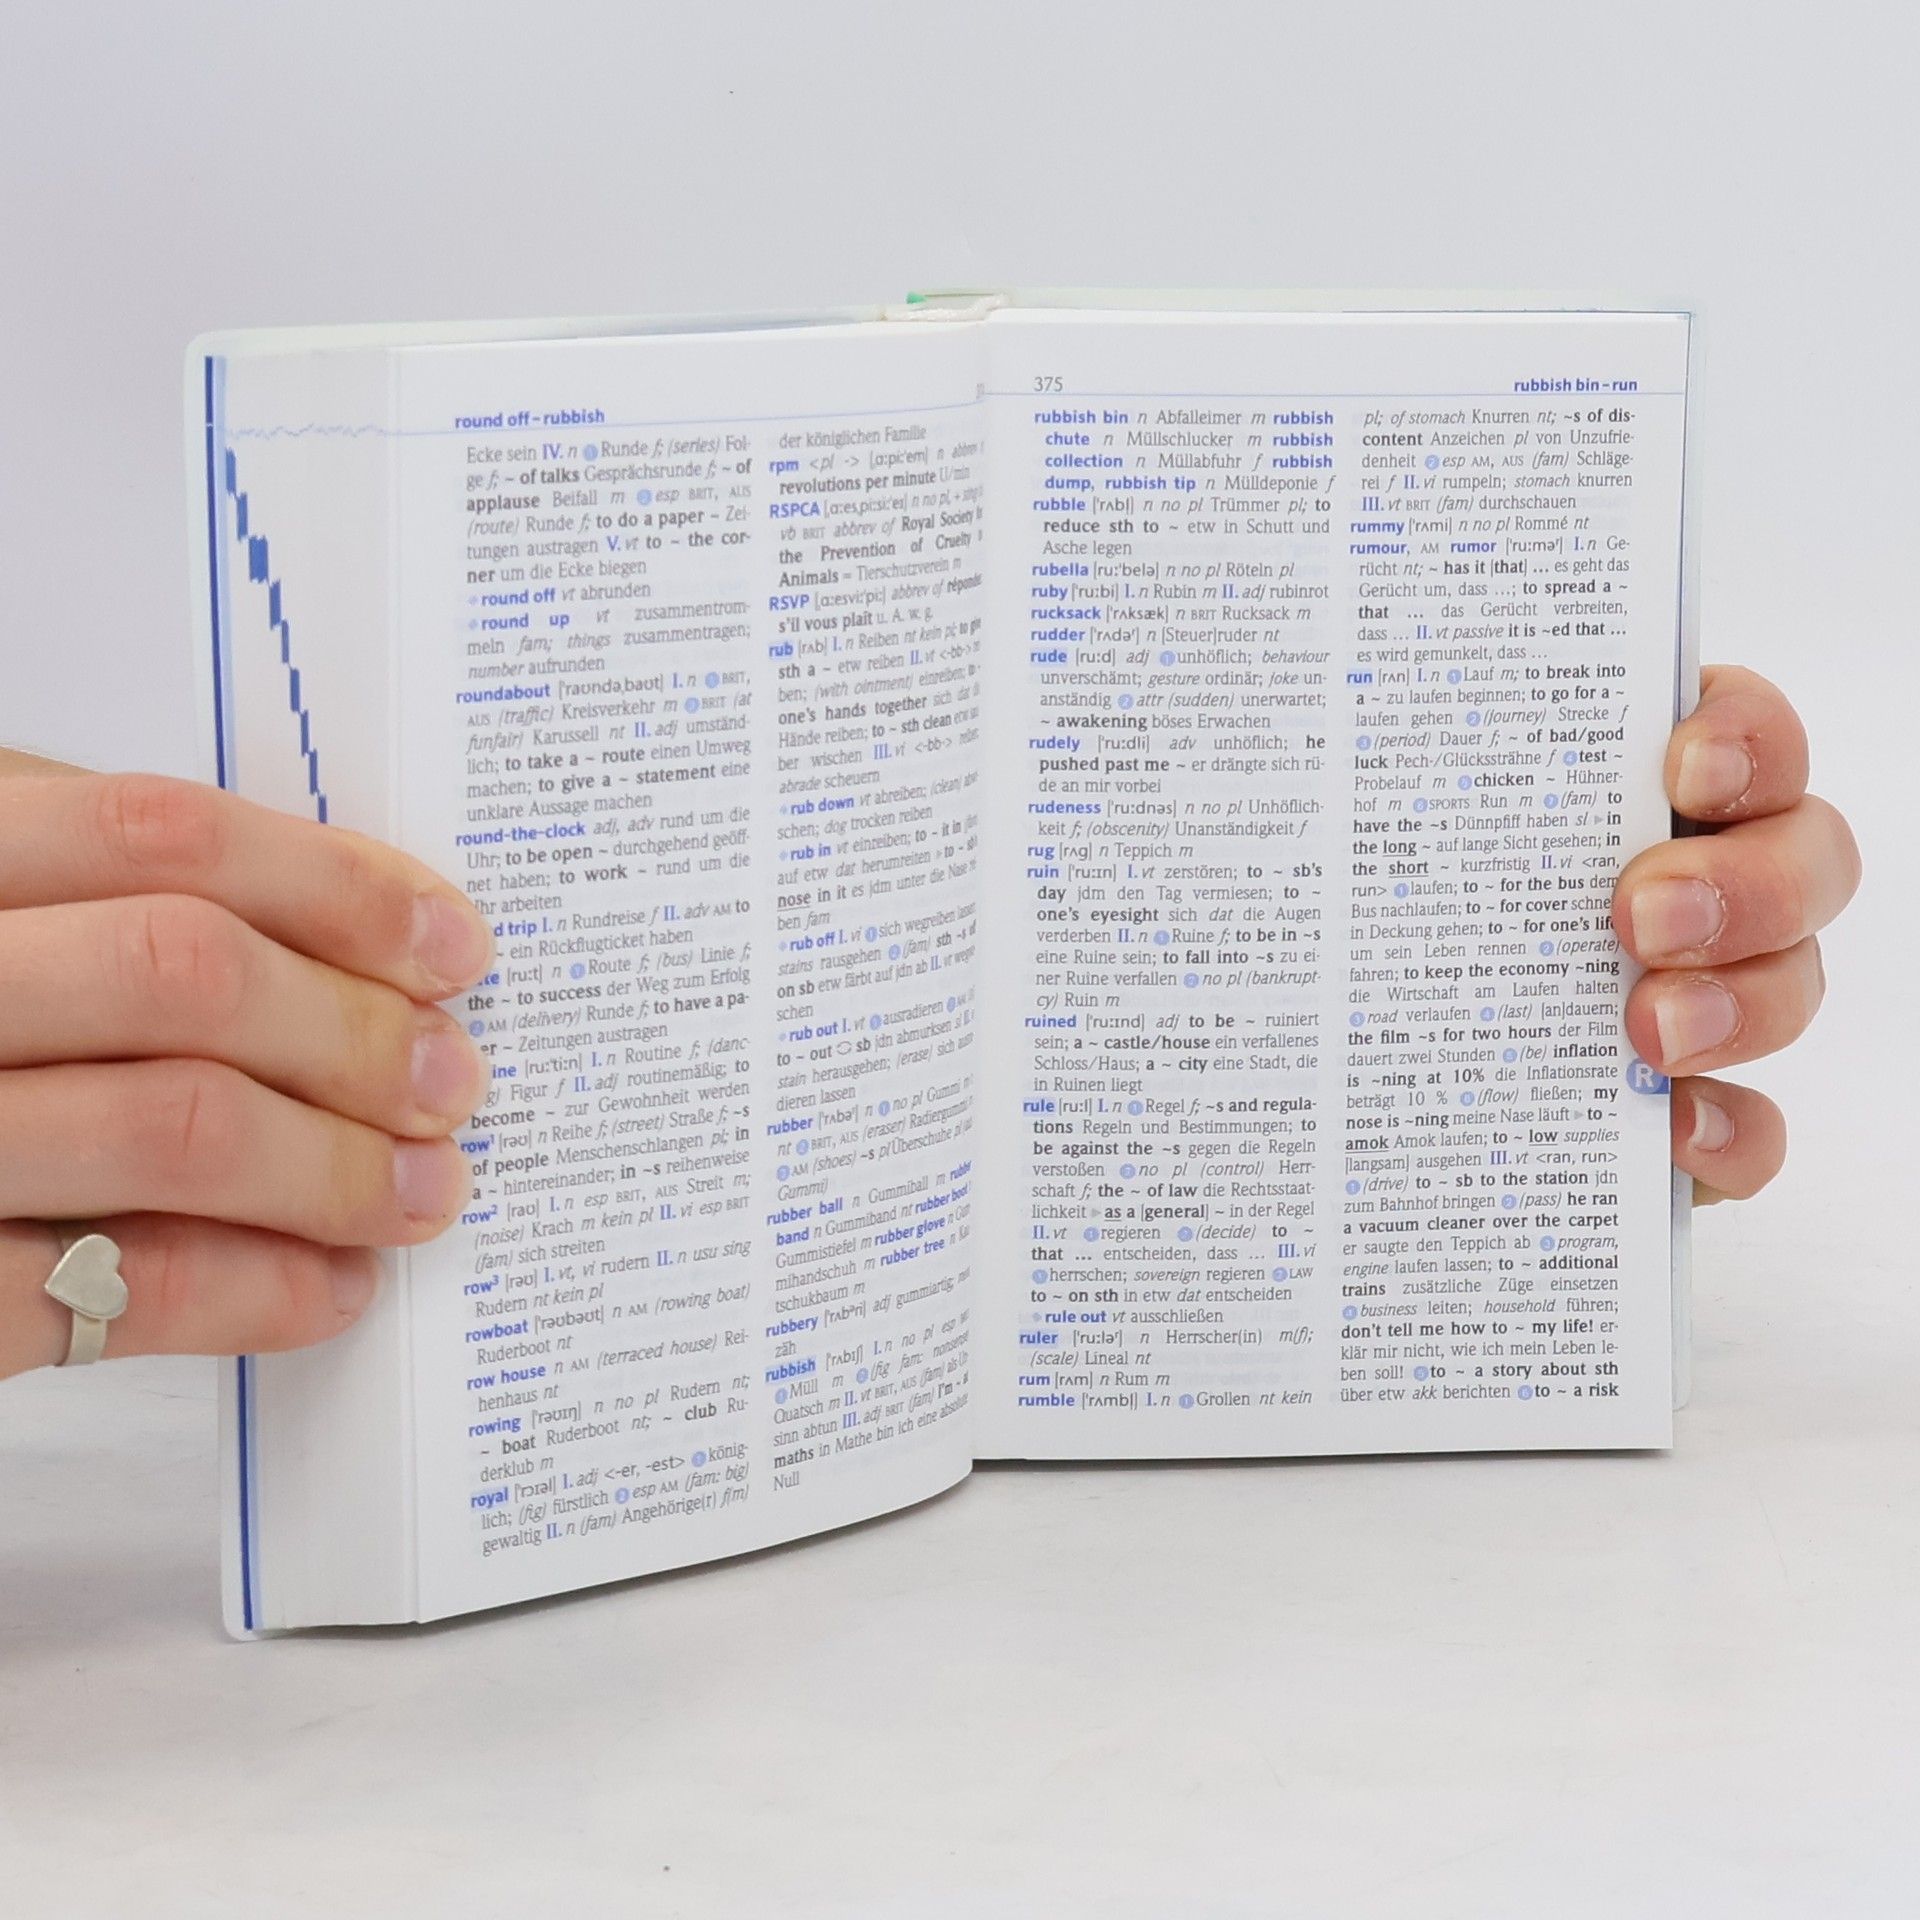 round off–rubbish
Ecke sein IV. n ① Runde f; (series) Fol-
ge f; ~ of talks Gesprächsrunde f; ~ of
applause Beifall m ② esp BRIT, AUS
(route) Runde f; to do a paper ~ Zei-
tungen austragen V. vt to ~ the cor-
ner um die Ecke biegen
round off vt abrunden
round up vt zusammentrom-
meln fam; things zusammentragen;
number aufrunden
roundabout ['raʊndəˌbaʊt] I. n ① BRIT,
AUS (traffic) Kreisverkehr m ② BRIT (at
funfair) Karussell nt II. adj umständ-
lich; to take a ~ route einen Umweg
machen; to give a ~ statement eine
unklare Aussage machen
round-the-clock adj, adv rund um die
Uhr; to be open ~ durchgehend geöff-
net haben; to work ~ rund um die
Uhr arbeiten
d trip I. n Rundreise f II. adv AM to
~ ein Rückflugticket haben
te [ru:t] n ① Route f; (bus) Linie f;
the ~ to success der Weg zum Erfolg
② AM (delivery) Runde f; to have a pa-
er ~ Zeitungen austragen
ine [ru:'ti:n] I. n Routine f; (danc-
g) Figur f II. adj routinemäßig; to
become ~ zur Gewohnheit werden
row¹ [rəʊ] n Reihe f; (street) Straße f; ~s
of people Menschenschlangen pl; in
a ~ hintereinander; in ~s reihenweise
row² [raʊ] I. n esp BRIT, AUS Streit m;
(noise) Krach m kein pl II. vi esp BRIT
(fam) sich streiten
row³ [rəʊ] I. vt, vi rudern II. n usu sing
Rudern nt kein pl
rowboat ['rəʊbəʊt] n AM (rowing boat)
Ruderboot nt
row house n AM (terraced house) Rei-
henhaus nt
rowing ['rəʊɪŋ] n no pl Rudern nt;
~ boat Ruderboot nt; ~ club Ru-
derklub m
royal ['rɔɪəl] I. adj <-er, -est> ① könig-
lich; (fig) fürstlich ② esp AM (fam: big)
gewaltig II. n (fam) Angehörige(r) f(m)
der königlichen Familie
rpm <pl -> [ˌɑ:pi:'em] n abbrev
revolutions per minute U/min
RSPCA [ˌɑ:esˌpi:si:'eɪ] n no pl, + sing
vb BRIT abbrev of Royal Society
the Prevention of Cruelty
Animals ≈ Tierschutzverein m
RSVP [ˌɑ:esvi:'pi:] abbrev of répondez
s'il vous plaît u. A. w. g.
rub [rʌb] I. n Reiben nt kein pl; to give
sth a ~ etw reiben II. vt <-bb->
ben; (with ointment) einreiben; to ~
one's hands together sich dat
Hände reiben; to ~ sth clean etw
ber wischen III. vi <-bb->
abrade scheuern
rub down vt abreiben; (clean)
schen; dog trocken reiben
rub in vt einreiben; to ~ it in
auf etw dat herumreiten ▸ to ~ sb's
nose in it es jdm unter die Nase
ben fam
rub off I. vi ① sich wegreiben lassen
stains rausgehen ② (fam) sth ~s
on sb etw färbt auf jdn ab II. vt
schen
rub out I. vt ① ausradieren ②
to ~ out sb jdn abmurksen sl II.
stain herausgehen; (erase) sich
dieren lassen
rubber ['rʌbəʳ] n ① no pl Gummi
nt ② BRIT, AUS (eraser) Radiergummi
③ AM (shoes) ~s pl Überschuhe pl
Gummi)
rubber ball n Gummiball m rubber
band n Gummiband nt rubber boot
Gummistiefel m rubber glove n Gum-
mihandschuh m rubber tree n Kau-
tschukbaum m
rubbery ['rʌbᵊri] adj gummiartig;
zäh
rubbish ['rʌbɪʃ] I. n no pl esp
① Müll m ② (fig fam: nonsense)
Quatsch m II. vt BRIT, AUS (fam) als Un-
sinn abtun III. adj BRIT (fam) I'm ~
maths in Mathe bin ich eine absolute
Null
375
rubbish bin–run
rubbish bin n Abfalleimer m rubbish
chute n Müllschlucker m rubbish
collection n Müllabfuhr f rubbish
dump, rubbish tip n Mülldeponie f
rubble ['rʌbl̩] n no pl Trümmer pl; to
reduce sth to ~ etw in Schutt und
Asche legen
rubella [ru:'belə] n no pl Röteln pl
ruby ['ru:bi] I. n Rubin m II. adj rubinrot
rucksack ['rʌksæk] n BRIT Rucksack m
rudder ['rʌdəʳ] n [Steuer]ruder nt
rude [ru:d] adj ① unhöflich; behaviour
unverschämt; gesture ordinär; joke un-
anständig ② attr (sudden) unerwartet;
~ awakening böses Erwachen
rudely ['ru:dli] adv unhöflich; he
pushed past me ~ er drängte sich rü-
de an mir vorbei
rudeness ['ru:dnəs] n no pl Unhöflich-
keit f; (obscenity) Unanständigkeit f
rug [rʌg] n Teppich m
ruin ['ru:ɪn] I. vt zerstören; to ~ sb's
day jdm den Tag vermiesen; to ~
one's eyesight sich dat die Augen
verderben II. n ① Ruine f; to be in ~s
eine Ruine sein; to fall into ~s zu ei-
ner Ruine verfallen ② no pl (bankrupt-
cy) Ruin m
ruined ['ru:ɪnd] adj to be ~ ruiniert
sein; a ~ castle/house ein verfallenes
Schloss/Haus; a ~ city eine Stadt, die
in Ruinen liegt
rule [ru:l] I. n ① Regel f; ~s and regula-
tions Regeln und Bestimmungen; to
be against the ~s gegen die Regeln
verstoßen ② no pl (control) Herr-
schaft f; the ~ of law die Rechtsstaat-
lichkeit ▸ as a [general] ~ in der Regel
II. vt ① regieren ② (decide) to ~
that ... entscheiden, dass ... III. vi
① herrschen; sovereign regieren ② LAW
to ~ on sth in etw dat entscheiden
rule out vt ausschließen
ruler ['ru:ləʳ] n Herrscher(in) m(f);
(scale) Lineal nt
rum [rʌm] n Rum m
rumble ['rʌmbl̩] I. n ① Grollen nt kein
pl; of stomach Knurren nt; ~s of dis-
content Anzeichen pl von Unzufrie-
denheit ② esp AM, AUS (fam) Schläge-
rei f II. vi rumpeln; stomach knurren
III. vt BRIT (fam) durchschauen
rummy ['rʌmi] n no pl Rommé nt
rumour, AM rumor ['ru:məʳ] I. n Ge-
rücht nt; ~ has it [that] ... es geht das
Gerücht um, dass ...; to spread a ~
that ... das Gerücht verbreiten,
dass ... II. vt passive it is ~ed that ...
es wird gemunkelt, dass ...
run [rʌn] I. n ① Lauf m; to break into
a ~ zu laufen beginnen; to go for a ~
laufen gehen ② (journey) Strecke f
③ (period) Dauer f; ~ of bad/good
luck Pech-/Glückssträhne f ④ test ~
Probelauf m ⑤ chicken ~ Hühner-
hof m ⑥ SPORTS Run m ⑦ (fam) to
have the ~s Dünnpfiff haben sl ▸ in
the long ~ auf lange Sicht gesehen; in
the short ~ kurzfristig II. vi <ran,
run> ① laufen; to ~ for the bus dem
Bus nachlaufen; to ~ for cover schnell
in Deckung gehen; to ~ for one's life
um sein Leben rennen ② (operate)
fahren; to keep the economy ~ning
die Wirtschaft am Laufen halten
③ road verlaufen ④ (last) [an]dauern;
the film ~s for two hours der Film
dauert zwei Stunden ⑤ (be) inflation
is ~ning at 10% die Inflationsrate
beträgt 10 % ⑥ (flow) fließen; my
nose is ~ning meine Nase läuft ▸ to ~
amok Amok laufen; to ~ low supplies
[langsam] ausgehen III. vt <ran, run>
① (drive) to ~ sb to the station jdn
zum Bahnhof bringen ② (pass) he ran
a vacuum cleaner over the carpet
er saugte den Teppich ab ③ program,
engine laufen lassen; to ~ additional
trains zusätzliche Züge einsetzen
④ business leiten; household führen;
don't tell me how to ~ my life! er-
klär mir nicht, wie ich mein Leben le-
ben soll! ⑤ to ~ a story about sth
über etw akk berichten ⑥ to ~ a risk
R